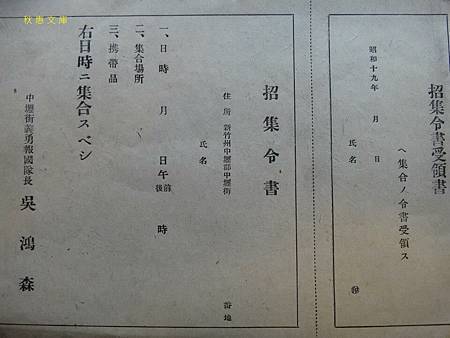 秋惠文庫
招集令書受領書
昭和十九年　月　日
ヘ集合ノ令書受領ス
氏名
招集令書
住所 新竹州中壢郡中壢街
番地
氏名
一、日時　月　日午前後　時
二、集合場所
三、携帶品
右日時ニ集合スベシ
中壢街義勇報國隊長　吳鴻森